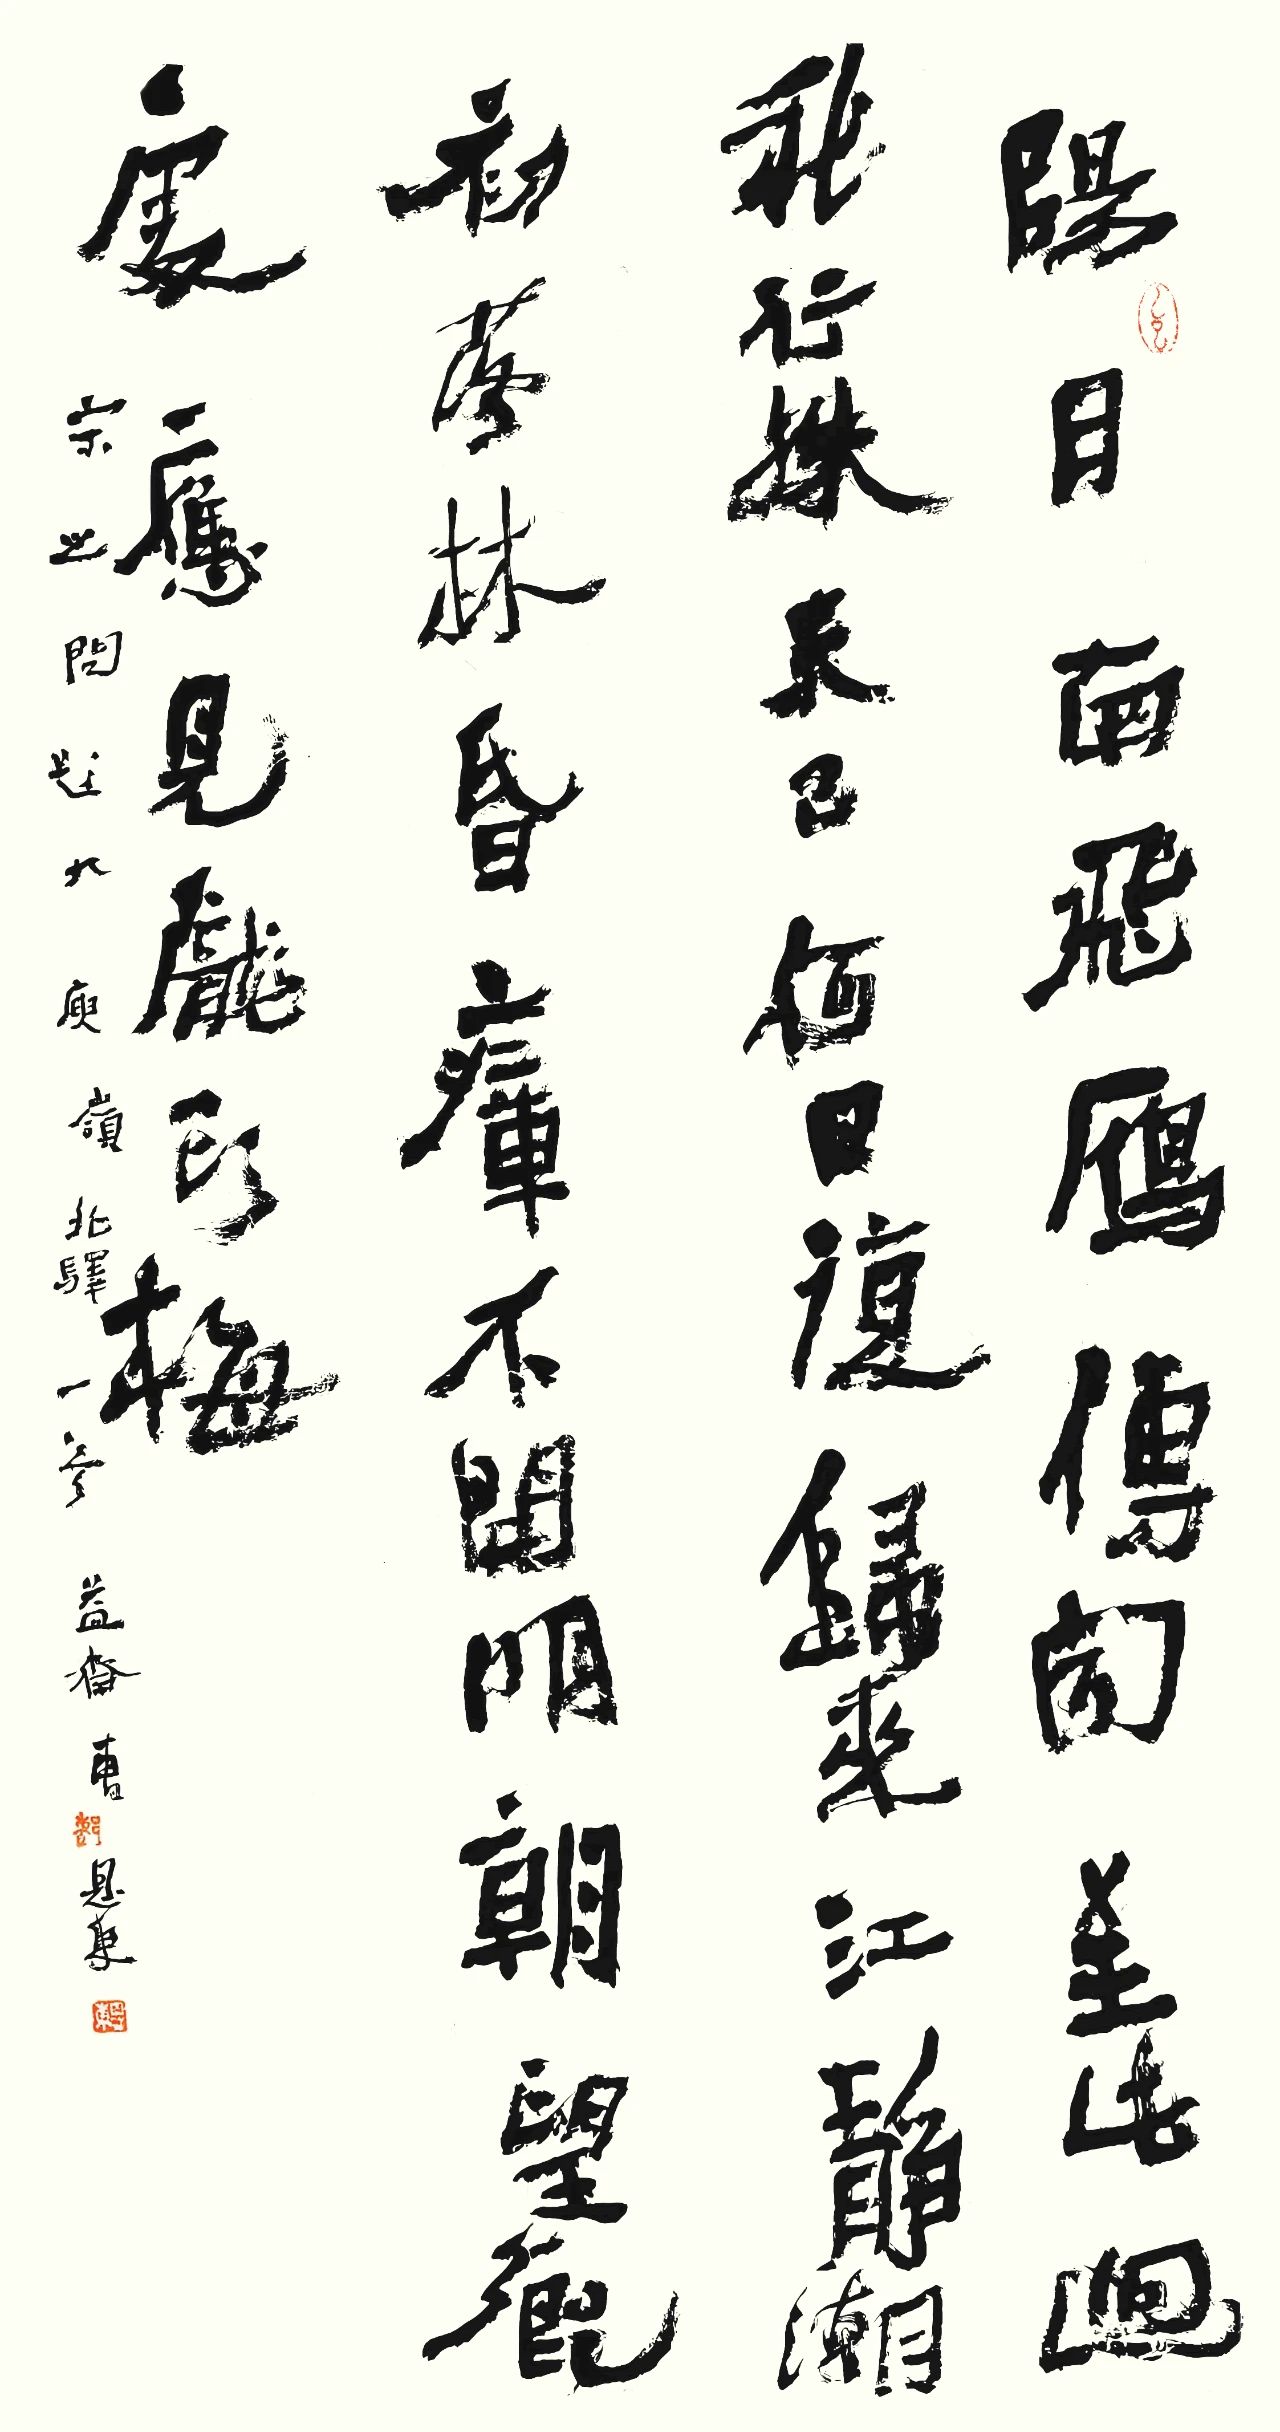 陽月南飛鴈傳聞至此迴
我行殊未已何日復歸來江靜潮
初落林昏瘴不開明朝望鄉
處應見隴頭梅
宋之問題大庾嶺北驛一 益齋曹東